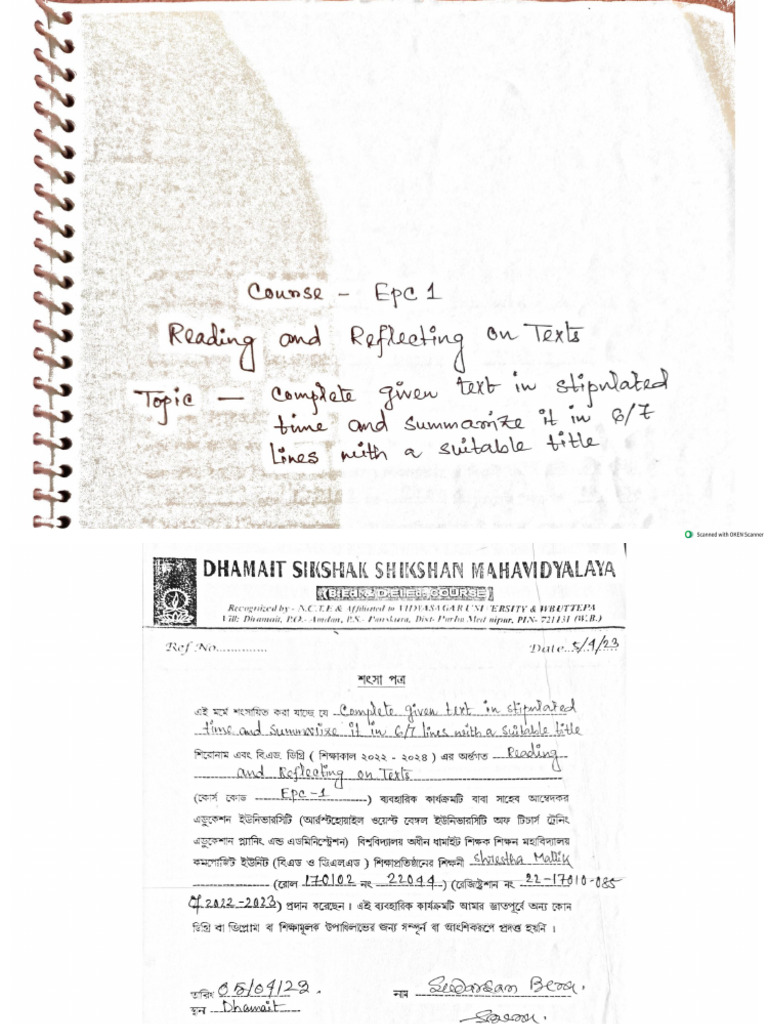 Course - Epc 1
Reading and Reflecting on Texts
Topic — Complete given text in stipulated
time and summarize it in 6/7
Lines with a suitable title
Scanned with OKEN Scanner
DHAMAIT SIKSHAK SHIKSHAN MAHAVIDYALAYA
(B.Ed. & D.El.Ed. COURSE)
Recognized by - N.C.T.E & Affiliated to VIDYASAGAR UNIVERSITY & WBUTTEPA
Vill: Dhamait, P.O.- Amdan, P.S.- Panskura, Dist- Purba Medinipur, PIN- 721131 (W.B.)
Ref No............. Date..5/4/23
শংসা পত্র
এই মর্মে শংসায়িত করা যাচ্ছে যে Complete given text in stipulated
time and summarize it in 6/7 lines with a suitable title
শিরোনাম এবং বি.এড. ডিগ্রি ( শিক্ষাকাল ২০২২ - ২০২৪ ) এর অর্ন্তগত Reading
and Reflecting on Texts
(কোর্স কোড Epc-1 ) ব্যবহারিক কার্যক্রমটি বাবা সাহেব আম্বেদকর
এডুকেশন ইউনিভারসিটি (আর্স্টহোয়াইল ওয়েস্ট বেঙ্গল ইউনিভারসিটি অফ টিচার্স ট্রেনিং
এডুকেশান প্ল্যানিং এন্ড এডমিনিস্ট্রেশন) বিশ্ববিদ্যালয় অধীন ধামাইট শিক্ষক শিক্ষন মহাবিদ্যালয়
কমপোজিট ইউনিট (বি.এড ও ডি.এল.এড ) শিক্ষাপ্রতিষ্ঠানের শিক্ষনী Shrestha Mallik
(রোল 170102 নং 22044 ) (রেজিষ্ট্রেশান নং 22-17010-085
7 2022-2023) প্রদান করেছেন । এই ব্যবহারিক কার্যক্রমটি আমার জ্ঞাতপূর্বে অন্য কোন
ডিগ্রি বা ডিপ্লোমা বা শিক্ষামূলক উপাধিলাভের জন্য সম্পূর্ন বা আংশিকরূপে প্রদত্ত হয়নি ।
তারিং 05/04/23. নাম Sudarsan Bera.
স্থান Dhamait